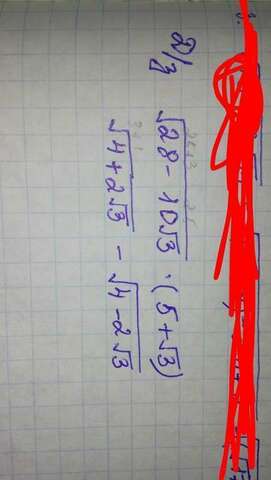 Д/з
√28 - 10√3 · (5 + √3)
√4 + 2√3 - √4 - 2√3